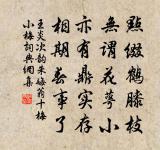 點綴鶴膝枝
無謂花萼小
亦有鼎實存
相期春事了
王炎次韻朱晦翁十梅
小梅詞典網集